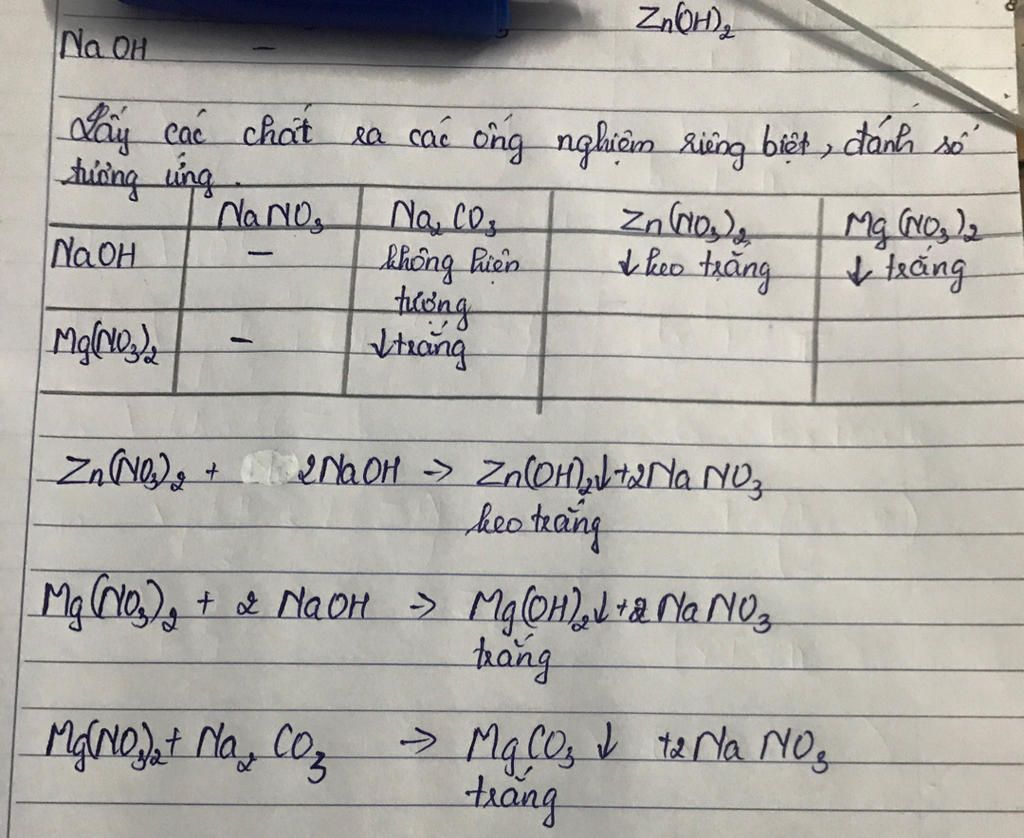 Zn(OH)₂
NaOH –
Lấy các chất ra các ống nghiệm riêng biệt, đánh số
tương ứng.
NaNO₃ Na₂CO₃ Zn(NO₃)₂ Mg(NO₃)₂
NaOH – không hiện ↓ keo trắng ↓ trắng
tượng
Mg(NO₃)₂ – ↓ trắng
Zn(NO₃)₂ + 2NaOH → Zn(OH)₂↓ + 2NaNO₃
keo trắng
Mg(NO₃)₂ + 2 NaOH → Mg(OH)₂↓ + 2 NaNO₃
trắng
Mg(NO₃)₂ + Na₂CO₃ → MgCO₃ ↓ + 2NaNO₃
trắng